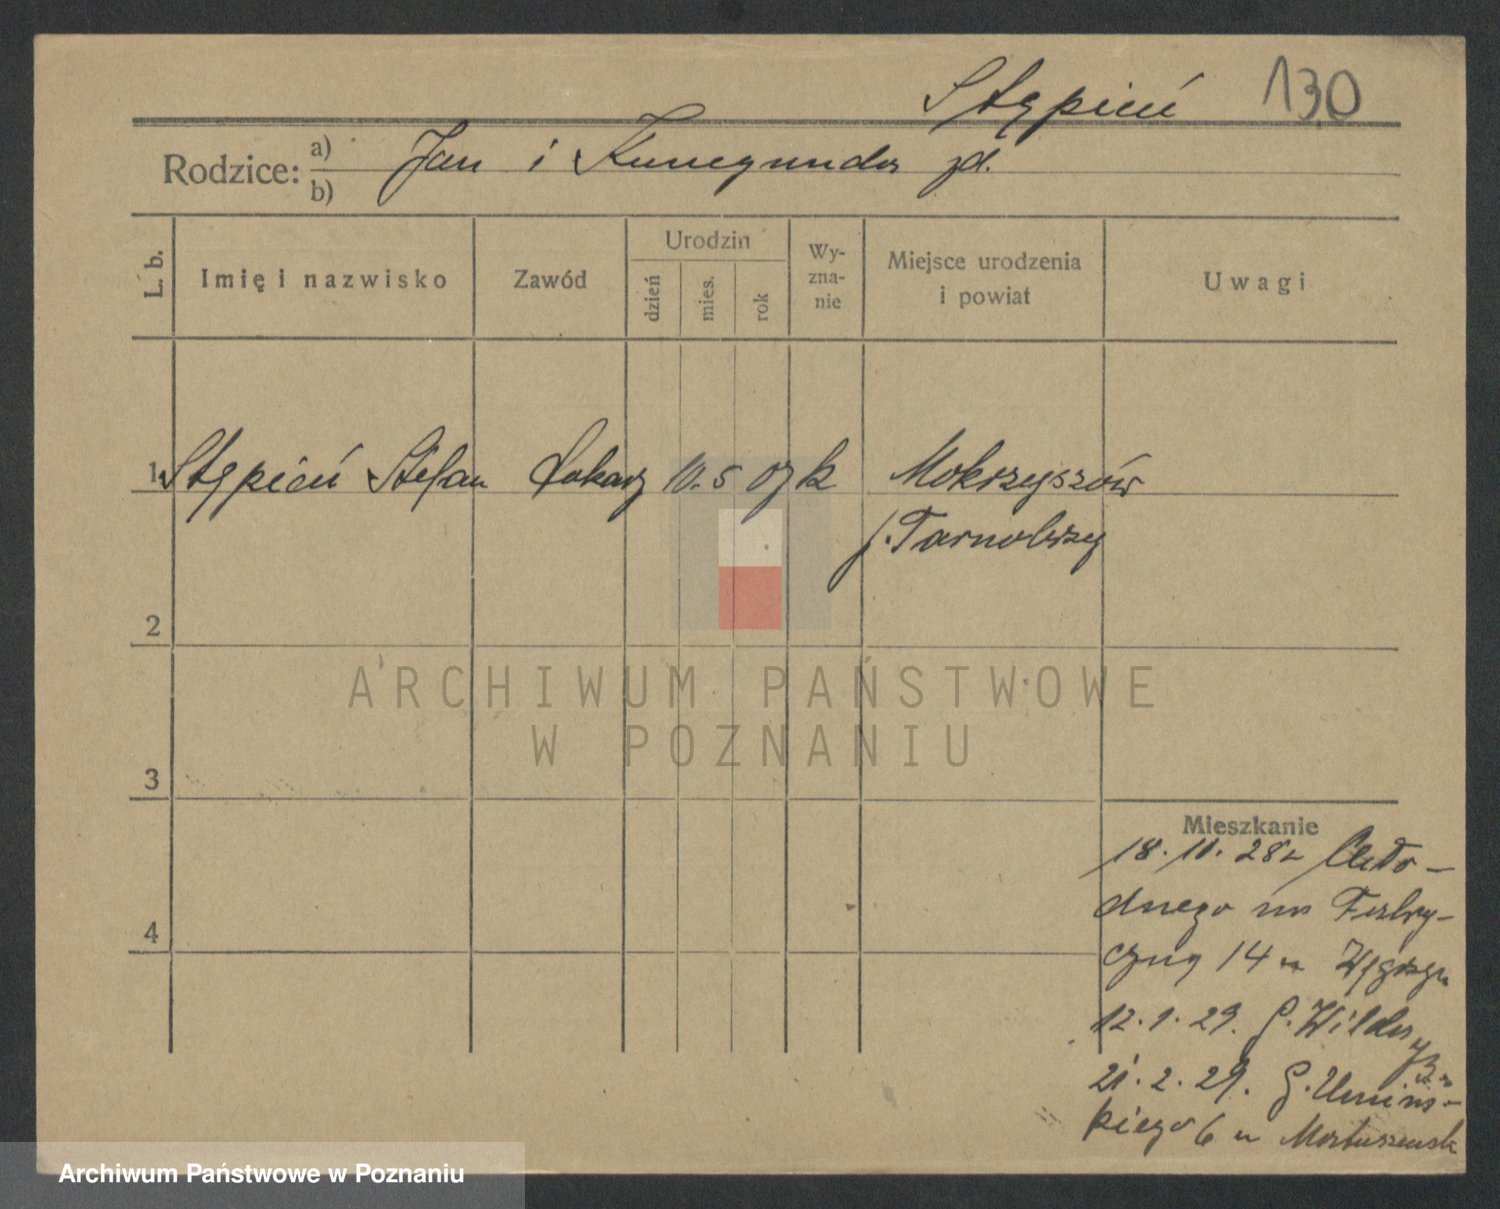 Stępień 130
Rodzice: a) Jan i Kunegunda zd.
b)
L. b.
Imię i nazwisko
Zawód
Urodzin
dzień
mies.
rok
Wy-
zna-
nie
Miejsce urodzenia
i powiat
Uwagi
1 Stępień Stefan tokarz 10. 5 07 k Mokrzyszów
p. Tarnobrzeg
2
ARCHIWUM PAŃSTWOWE
W POZNANIU
3
Mieszkanie
18. 11. 28
dnego na Fabry-
4
czną 14 u
12. 1. 29. G. Wilda
21. 2. 29. G. Umińs-
kiego 6 u
Archiwum Państwowe w Poznaniu